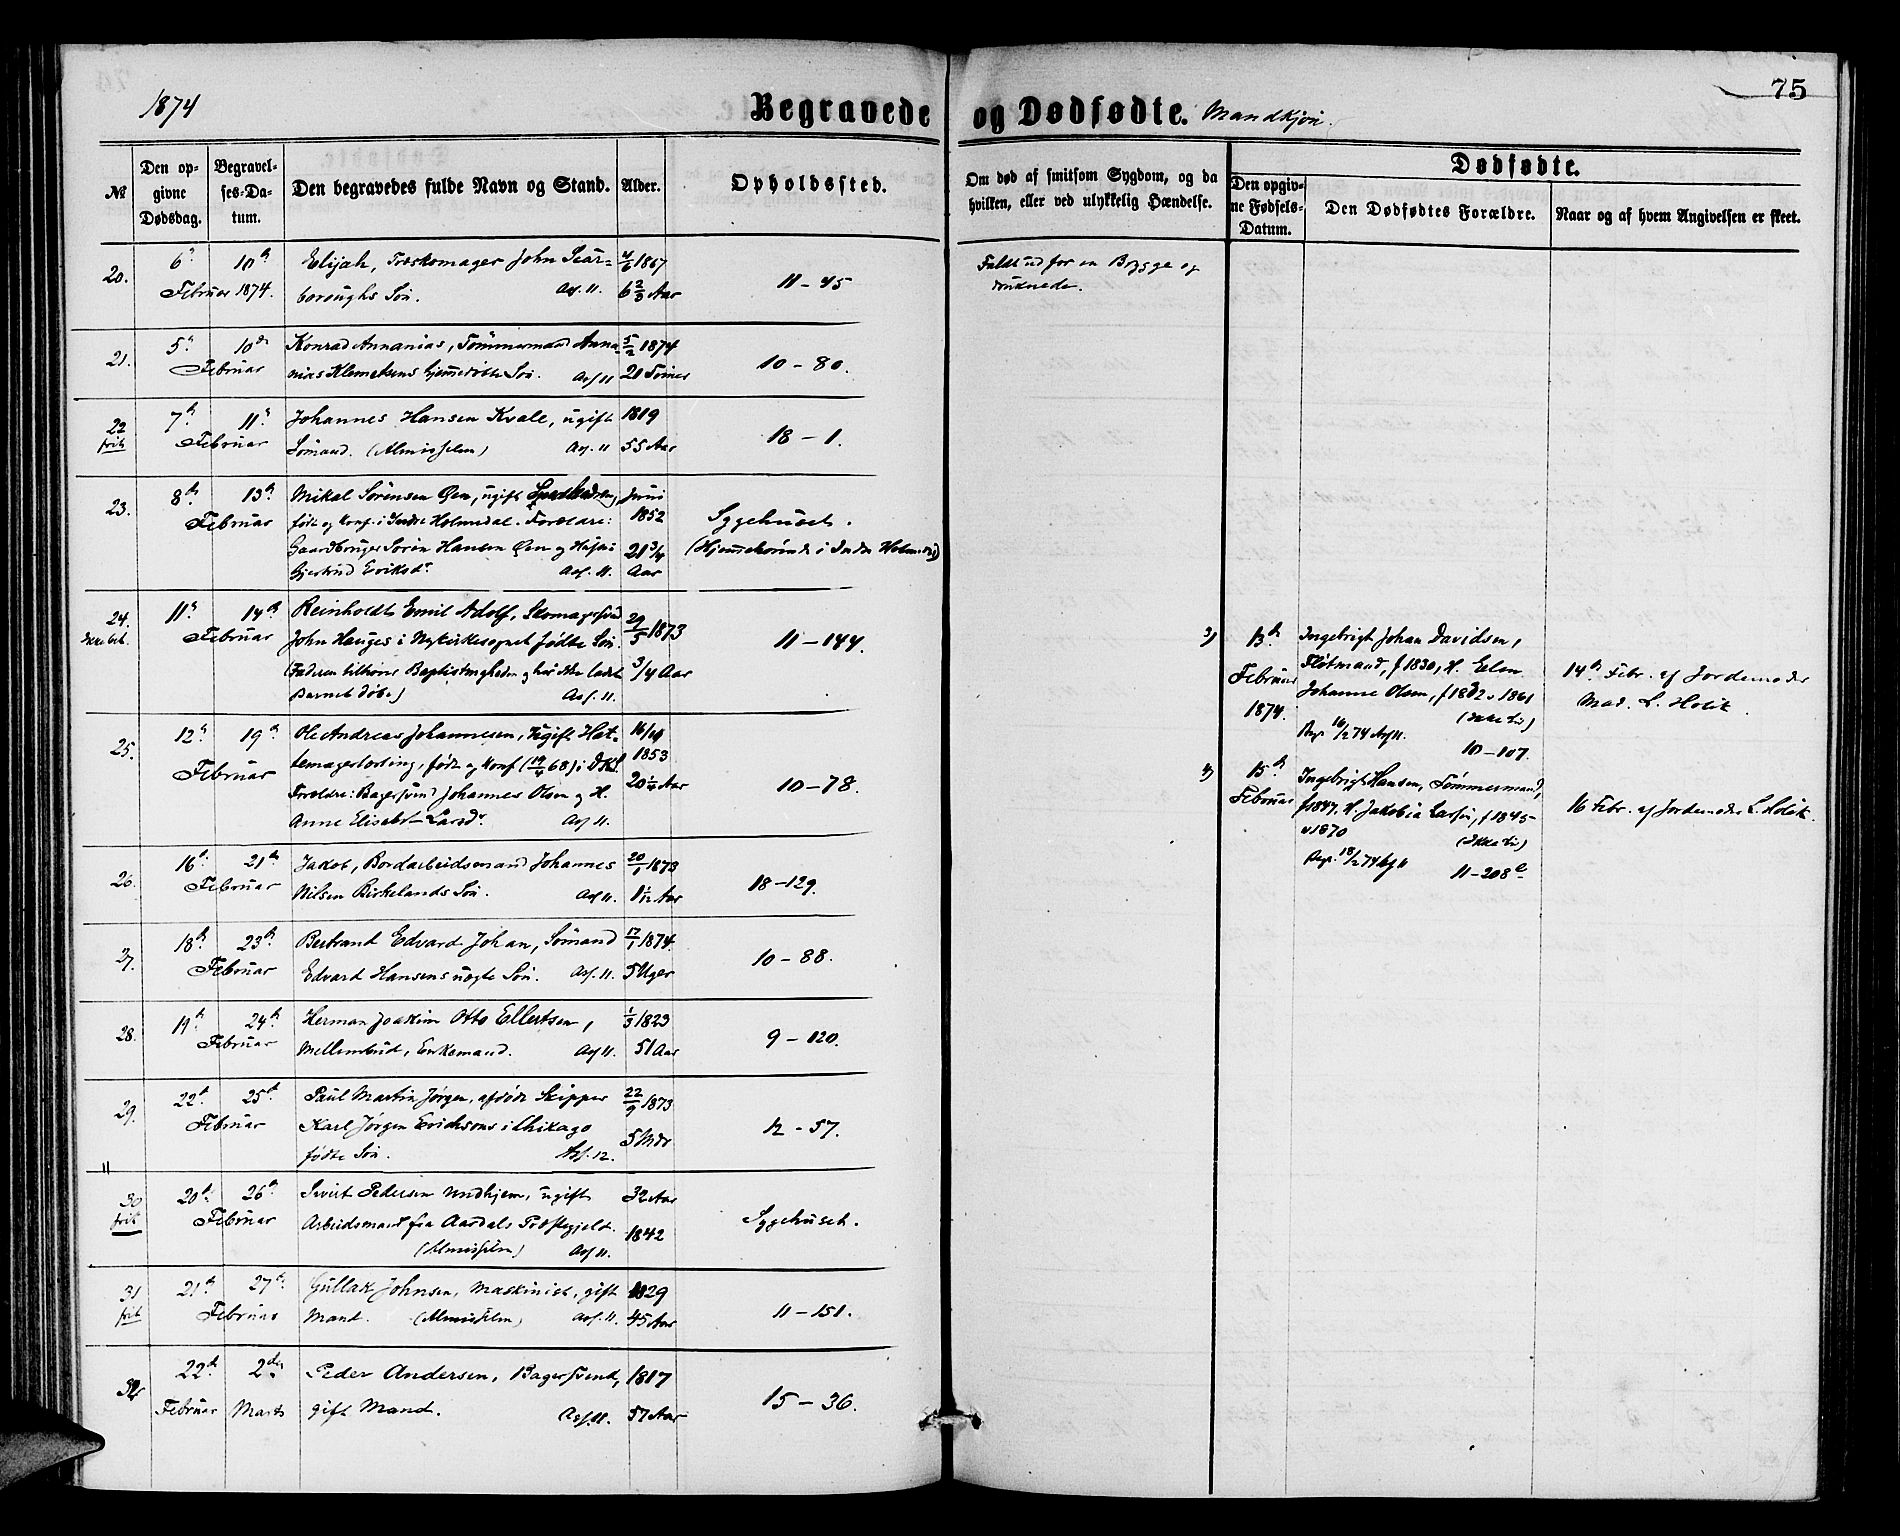 1874
Begravede og Dødfødte. Mandkjøn.
75
№
Den opgivne Dødsdag.
Begravelses-Datum.
Den begravedes fulde Navn og Stand.
Alder.
Opholdssted.
Om død af smitsom Sygdom, og da hvilken, eller ved ulykkelig Hændelse.
Dødfødte.
Den opgivne Fødsels-Datum.
Den Dødfødtes Forældre.
Naar og af hvem Angivelsen er skeet.
20. 6 10 Elijah, Træskomager John Scar= 4/6 1867
Februar 1874. boroughs Søn. Ass. 11. 6 2/3 Aar
11 – 45
Faldt ud for en Brygge og
druknede.
21. 5 10 Konrad Annanias, Tømmermand Anna= 5/2 1874
Februar nias Klemetsens hjemmedøbte Søn. Ass 11 20 Timer
10 – 80.
22 7 11 Johannes Hansen Kvale, ugift 1819
frit Februar Sømand. (Almisselem) Ass. 11 55 Aar
18 – 1.
23. 8 13 Mikal Sørensen Øen, ugift Juni
Februar født og konf. i Indre Holmedal. Forældre: 1852
Gaardbruger Søren Hansen Øen og Hustru 21 3/4
Gjertrud Eriksd. Ass. 11. Aar
Sygehuset.
(Hjemmehørende i Indre Holmedal)
24. 11 14 Reinholdt Emil Adolf, Skomagersvend 29/5 1873
Februar John Hauges i Nykirkesognet fødte Søn.
(Faderen tilhører Baptistmenigheden og har ikke ladet 3/4 Aar
Barnet døbe) Ass. 11.
11 – 144.
25. 12 19 Ole Andreas Johannesen, ugift Hat= 16/10
Februar temagerlærling, født og konf (19/4 68) i DK. 1853
Forældre: Bagersvend Johannes Olsen og H. 20 1/4 Aar
Anne Elisabet Larsd. Ass 11.
10 – 78.
26. 16 21 Jakob, Bordarbeidsmand Johannes 20/1 1873
Februar Nilsen Birkelands Søn. Ass 11. 1 1/12 Aar
18 – 129.
27. 18 23 Bertrand Edvard Johan, Sømand 17/1 1874.
Februar Edvard Hansens uægte Søn. Ass. 11. 5 Uger
10 – 88.
28. 19 24 Herman Joakim Otto Ellertsen, 1/3 1823
Februar Mellembud, Enkemand. Ass 11. 51 Aar
9 – 120.
29. 22 25 Paul Martin Jørgen, afdøde Skipper 22/9 1873
Februar Karl Jørgen Erichsens i Chikago
fødte Søn. Ass. 12. 5 Mdr
12 – 57.
30 20 26 Sivert Pedersen Undhjem, ugift 32 Aar
frit Februar Arbeidsmand fra Aardals Præstegjeld. 1842
(Almisselem) Ass 11.
Sygehuset.
31 21 27 Gullak Johnsen, Maskinist, gift 1829
frit Februar Mand. (Almisselem) Ass. 11. 45 Aar
11 – 151.
32 22 2 Peder Andersen, Bagersvend, 1817
Februar Marts gift Mand. Ass. 11. 57 Aar
15 – 36.
3) 13 Ingebrigt Johan Davidsen,
Februar Fløtmand, f 1830, H. Elen
1874. Johanne Olsen, f 1832 v 1861
(Ikke Liv)
Begr. 16/2 74 Ass 11.
10 – 107.
14 Febr. af Jordemoder
Mad. L. Holik.
4) 15 Ingebrigt Hansen, Tømmermand,
Februar f 1847, H. Jakobia Larsen, f 1845
v 1870
(Ikke Liv)
Begr. 18/2 74 Ass 11
11 – 208
16 Febr. af Jordemoder L. Holik.